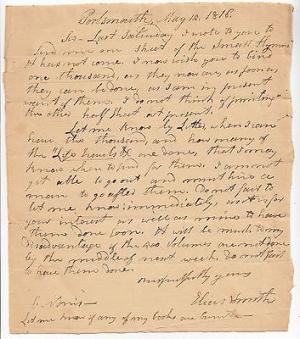 Portsmouth, May 12, 1818.
Sir - Last Saturday I wrote to you to
send me one sheet of the small Hymns
it has not come. I now wish you to bind
one thousand, as they now are, as soon as
they can be done, as I am in present
want of them. I do not think of printing
the other half sheet at present.
Let me know by letter, when I can
have the thousand, and how many of
the are done, that I may
know when to send for them. I am not
yet able to go out and must hire a
man to go after them. Do not fail to
let me know immediately, as it is for
your interest as well as mine to have
them done soon. It will be much to my
disadvantage if the 200 volumes are not done
by the middle of next week. Do not fail
to have them done.
respectfully yours
Elias Smith
Norris
Let me know if any of my books are